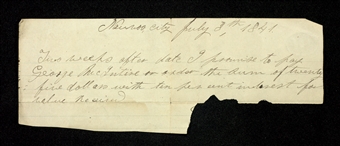 city July 8th 1841
Two weeks after date I promise to pay
George or order the sum of twenty
five dollars with ten per cent interest for
value received